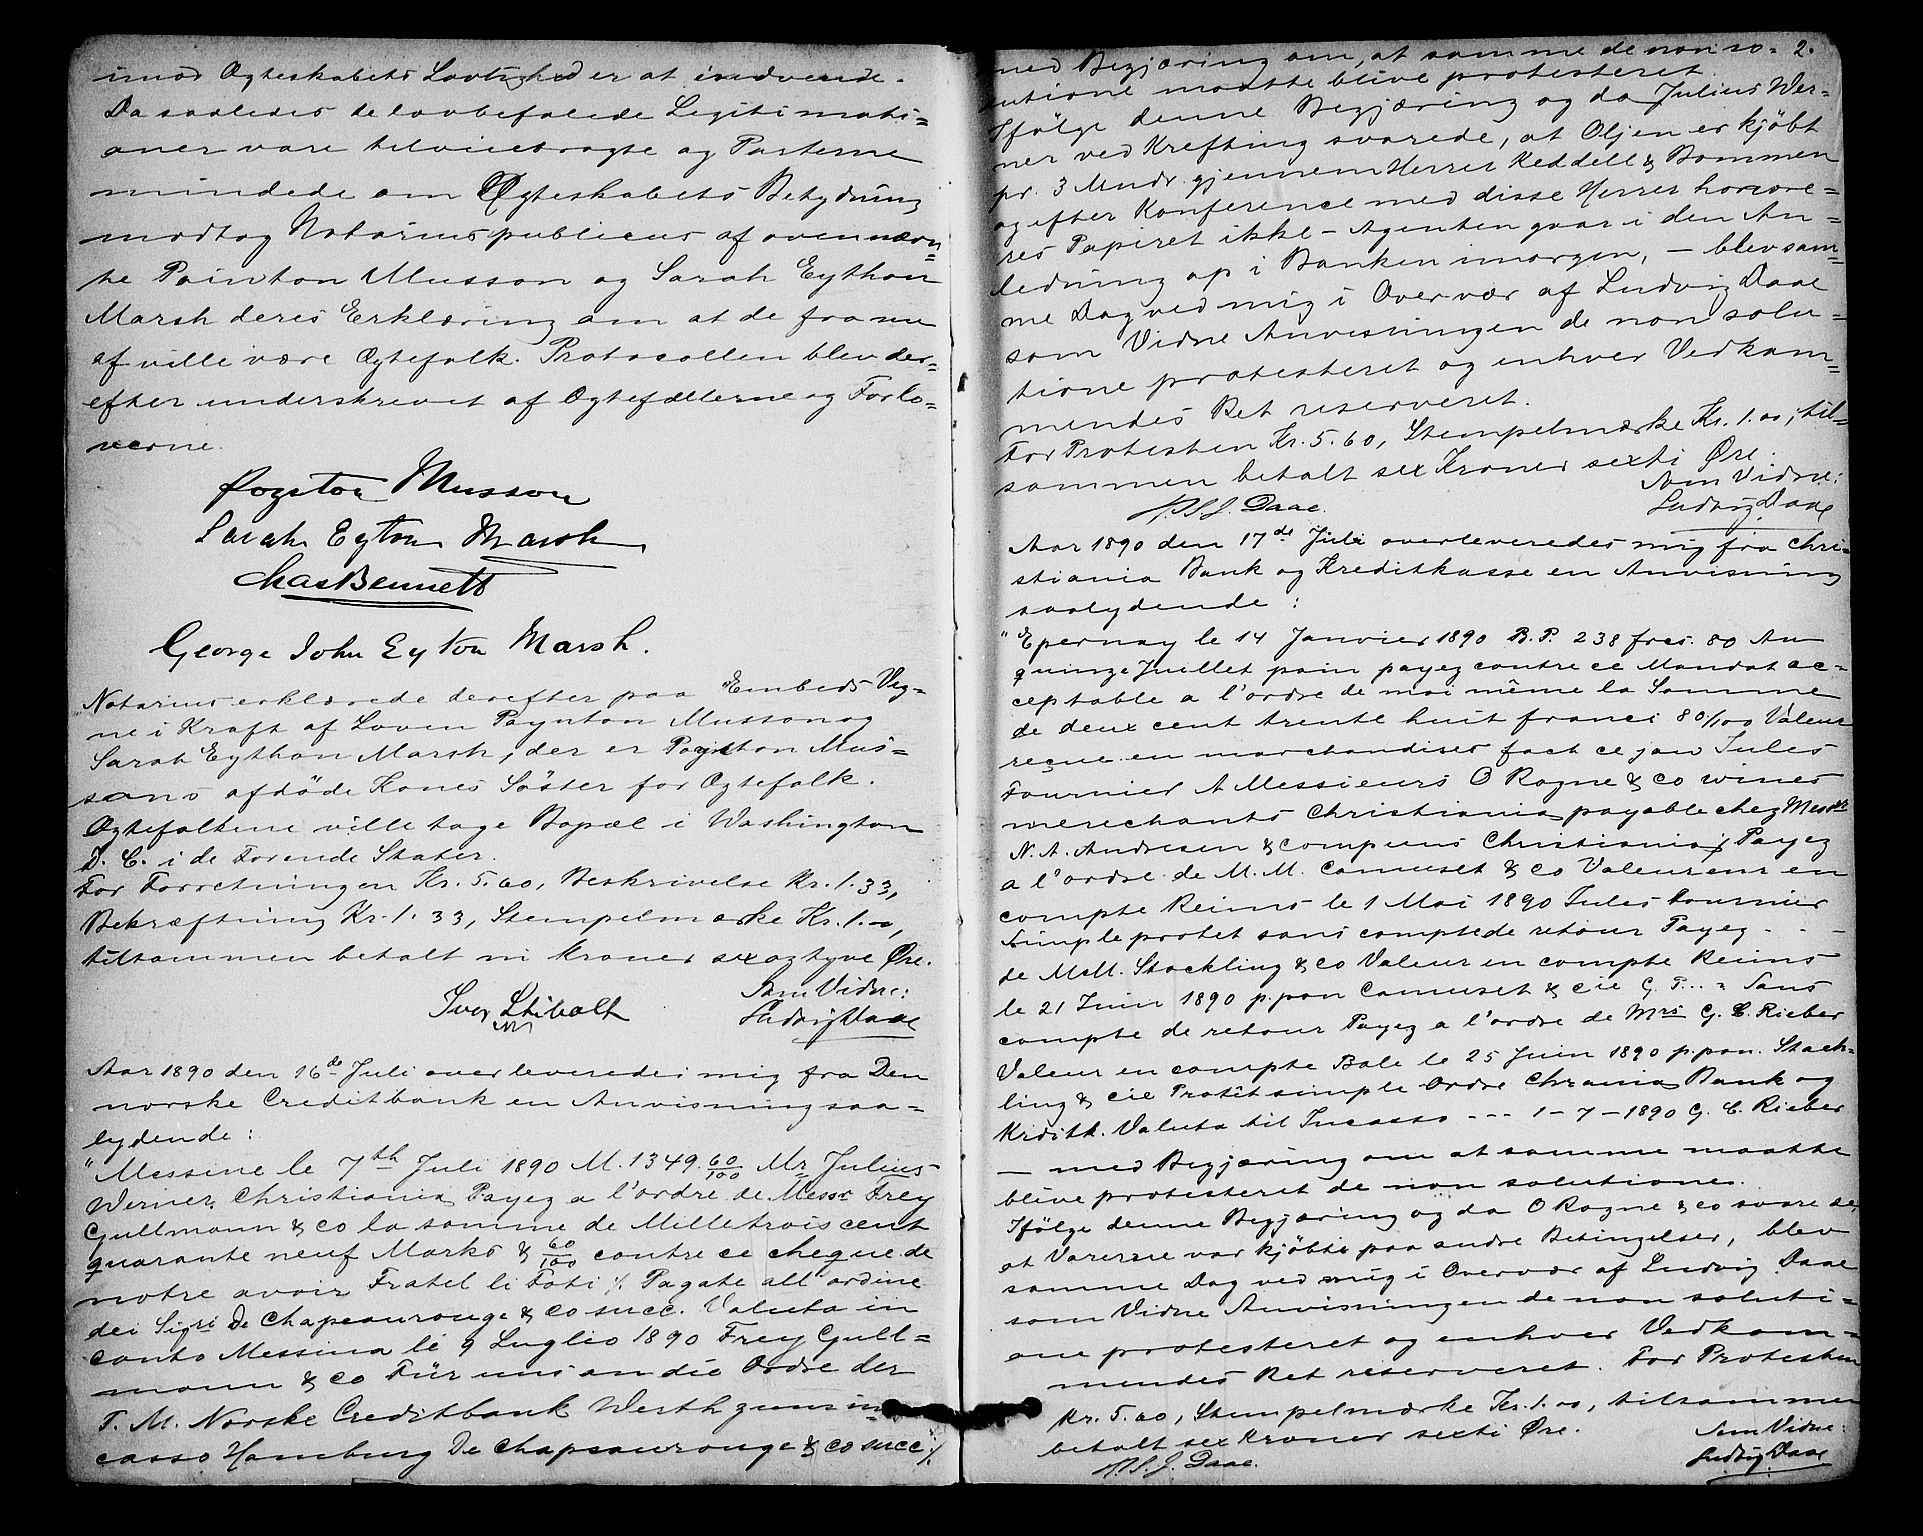 imod Ægteskabets Lovlighed er at indvende.
Da saaledes de lovbefalede Legitimati=
oner vare tilveiebragte og Parterne
mindede om Ægteskabets Betydning
modtog Notarius publicus af ovennævn=
te Pointon Musson og Sarah Eython
Marsh deres Erklæring om at de fra nu
af ville være Ægtefolk. Protocollen blev der=
efter underskrevet af Ægtefællerne og Forlo=
verne.
Poynton Musson
Sarah Eyton Marsh
Chas Bennett
George John Eyton Marsh.
Notarius erklærede derefter paa Embeds Veg=
ne i Kraft af Loven Paynton Musson og
Sarah Eython Marsh, der er Poynton Mus=
sons afdöde Kones Söster for Ægtefolk.
Ægtefolkene ville tage Bopæl i Washington
D. C. i de Forende Stater.
For Forretningen Kr. 5.60, Beskrivelse Kr. 1.33,
Bekræftning Kr. 1.33, Stempelmærke Kr. 1.00,
tilsammen betalt ni Kroner sexogtyve Øre.
Som Vidne:
Ludvig Daae
Aar 1890 den 16de Juli overleveredes mig fra Den
norske Creditbank en Anvisning saa=
lydende:
"Messine le 7th Juli 1890 M. 1349.60/100 Mr Julius
Werner, Christiania Payez a l'ordre de Messr Frey
Gullmann & Co la somme de Mille trois cent
quarante neuf Marks & 60/100 contre ce cheque de
notre avoir Fratel li Foti ./. Pagate all' ordine
dei Sigri De Chapeaurouge & Co succ. Valuta in
conto Messina li 9 Luglio 1890 Frey Gull=
mann & Co Für uns an die Ordre der
T. M. Norske Creditbank Werth zum in=
casso Hamburg De Chapeaurouge & Co succ ./.
2.
med Begjæring om, at samme de non so=
lutione maatte blive protesteret.
Ifölge denne Begjæring og da Julius Wer=
ner ved Krefting svarede, at Oljen er kjöbt
pr. 3 Mndr. gjennem Herrer Keddell & Bommen
og efter Konference med disse Herrer honore=
res Papiret ikke - Agenten gaar i den An=
ledning op i Banken imorgen, - blev sam=
me Dag ved mig i Overvær af Ludvig Daae
som Vidne Anvisningen de non solu=
tione protesteret og enhver Vedkom=
mendes Ret reserveret.
For Protesten Kr. 5.60, Stempelmærke Kr. 1.00, til=
sammen betalt sex Kroner sexti Øre.
Som Vidne:
Daae. Ludvig Daae
Aar 1890 den 17de Juli overleveredes mig fra Chri=
stiania Bank og Kreditkasse en Anvisning
saalydende:
"Epernay le 14 Janvier 1890 B. P. 238 frcs. 80 Au
quinze Juillet poin payez contre ce Mandat ac=
ceptable a l'ordre de moi même la Somme
de deux cent trente huit francs 80/100 Valeur
reçue en marchandises fact ce jour Jules
Fournier A Messieurs O Rogne & Co wines
merechants Christiania payable chez Messrs
N. A. Andresen & compens Christiania ./. Payez
a l'ordre de M. M. Camuset & Co Valeur en
compte Reims le 1 Mai 1890 Jules Fournier
Simple protet sans compte de retour Payez - - -
de MM. Stockling & Co Valeur en compte Reims
le 21 Juin 1890 p.pon Camuset & Cie G. P... = Sans
compte de retour Payez a l'ordre de Mrs G. C. Rieber
Valeur en compte Bale le 25 Juin 1890 p.pon. Stock=
ling & Cie Protêt simple Ordre Chrania Bank og
Krditk. Valuta til Incasso --- 1-7-1890 G. C. Rieber
- med Begjæring om at samme maatte
blive protesteret de non solutione.
Ifölge denne Begjæring og da O Rogne & Co svarede,
at Varerne var kjöbte paa andre Betingelser, blev
samme Dag ved mig i Overvær af Ludvig Daae
som Vidne Anvisningen de non soluti=
one protesteret og enhver Vedkom=
mendes Ret reserveret. For Protesten
Kr. 5.60, Stempelmærke Kr. 1.00, tilsammen
betalt sex Kroner sexti Øre.
Som Vidne:
Daae. Ludvig Daae